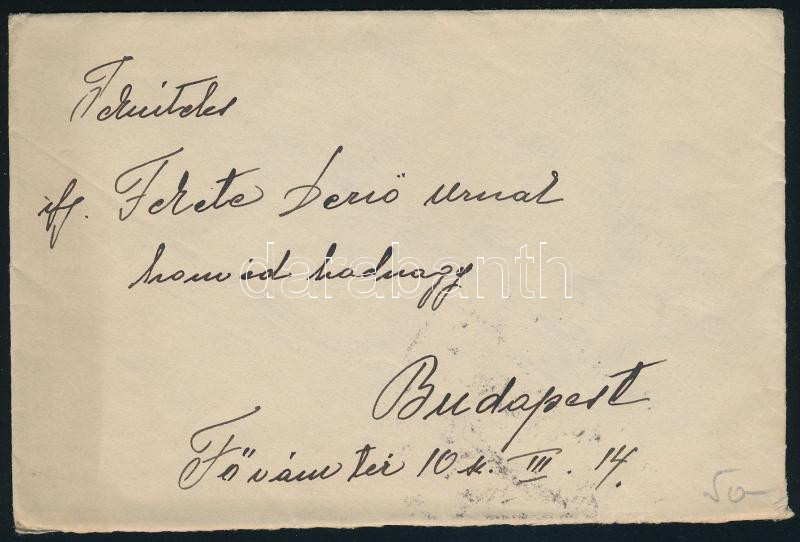 Tekintetes
ifj. Fekete Dezső urnak
honvéd hadnagy
darabanth
Budapest
Fővám tér 10 sz. III. 14.
50-